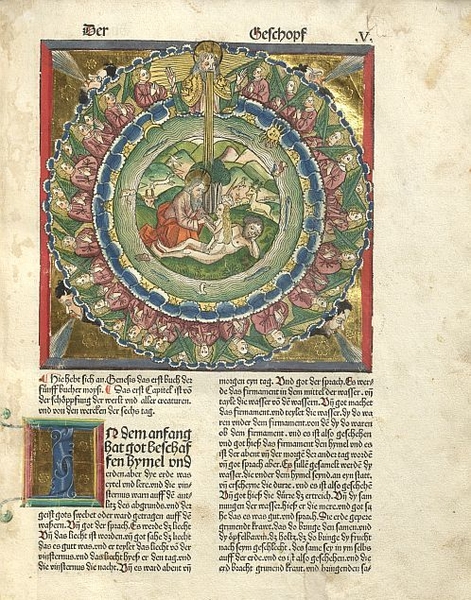 Der Geschopf .V.
Hie hebt sich an. Genesis das erst buch der
fünff bucher moysi. Das erst Capitel ist võ
der schöppfung der werlt vnd aller creaturen.
vnd von den wercken der sechs tag.
IN dem anfang
hat got beschaf
fen hymel vnd
erden. aber dye erde was
eytel vnd lere. vnd die vin
sternus warn auff dẽ ant
litz des abgrunds. vnd der
geist gots swebet oder ward getragen auff dẽ
wassern. Vñ got der sprach. Es werde dz liecht
Vñ das liecht ist worden. vñ got sahe dz liecht
das es gut was. vnd er teylet das liecht võ der
vinsternus. vnd das liecht hyeß er den tag. vnd
die vinsternus die nacht. Vñ es ward abent vñ
morgen eyn tag. Vnd got der sprach. Es wer
de das firmament in dem mittel der wasser. vñ
tayle die wasser võ dẽ wassern. Vñ got machet
das firmament. vnd teylet die wasser. dy do wa
ren vnder dem firmament. von dẽ dy do waren
ob dem firmament. vnd es ist also geschehen
vnd got hieß das firmament den hymel vnd es
ist der abent vñ der morgẽ der ander tag wordẽ
vñ got sprach aber. Es süllẽ gesamelt werdẽ dy
wasser. die vnder dem hymel seynd. an eyn stat.
vñ erscheyne die dürre. vnd es ist also geschehẽ
Vñ got hieß die dürre dz ertreich. Vñ dy sam
nungen der wasser. hieß er die mere. vnd got sa
he das es was gut. vnd sprach. Die erde gepere
grunend kraut. das do bringe den samen. vnd
dy öpfelbawm. dz holtz. dz do bringe dy frucht
nach seym geschlecht. des same sey in ym selbs
auff der erde. vnd es ist also geschehen. vnd die
erd bracht grunend kraut. vnd bringenden sa